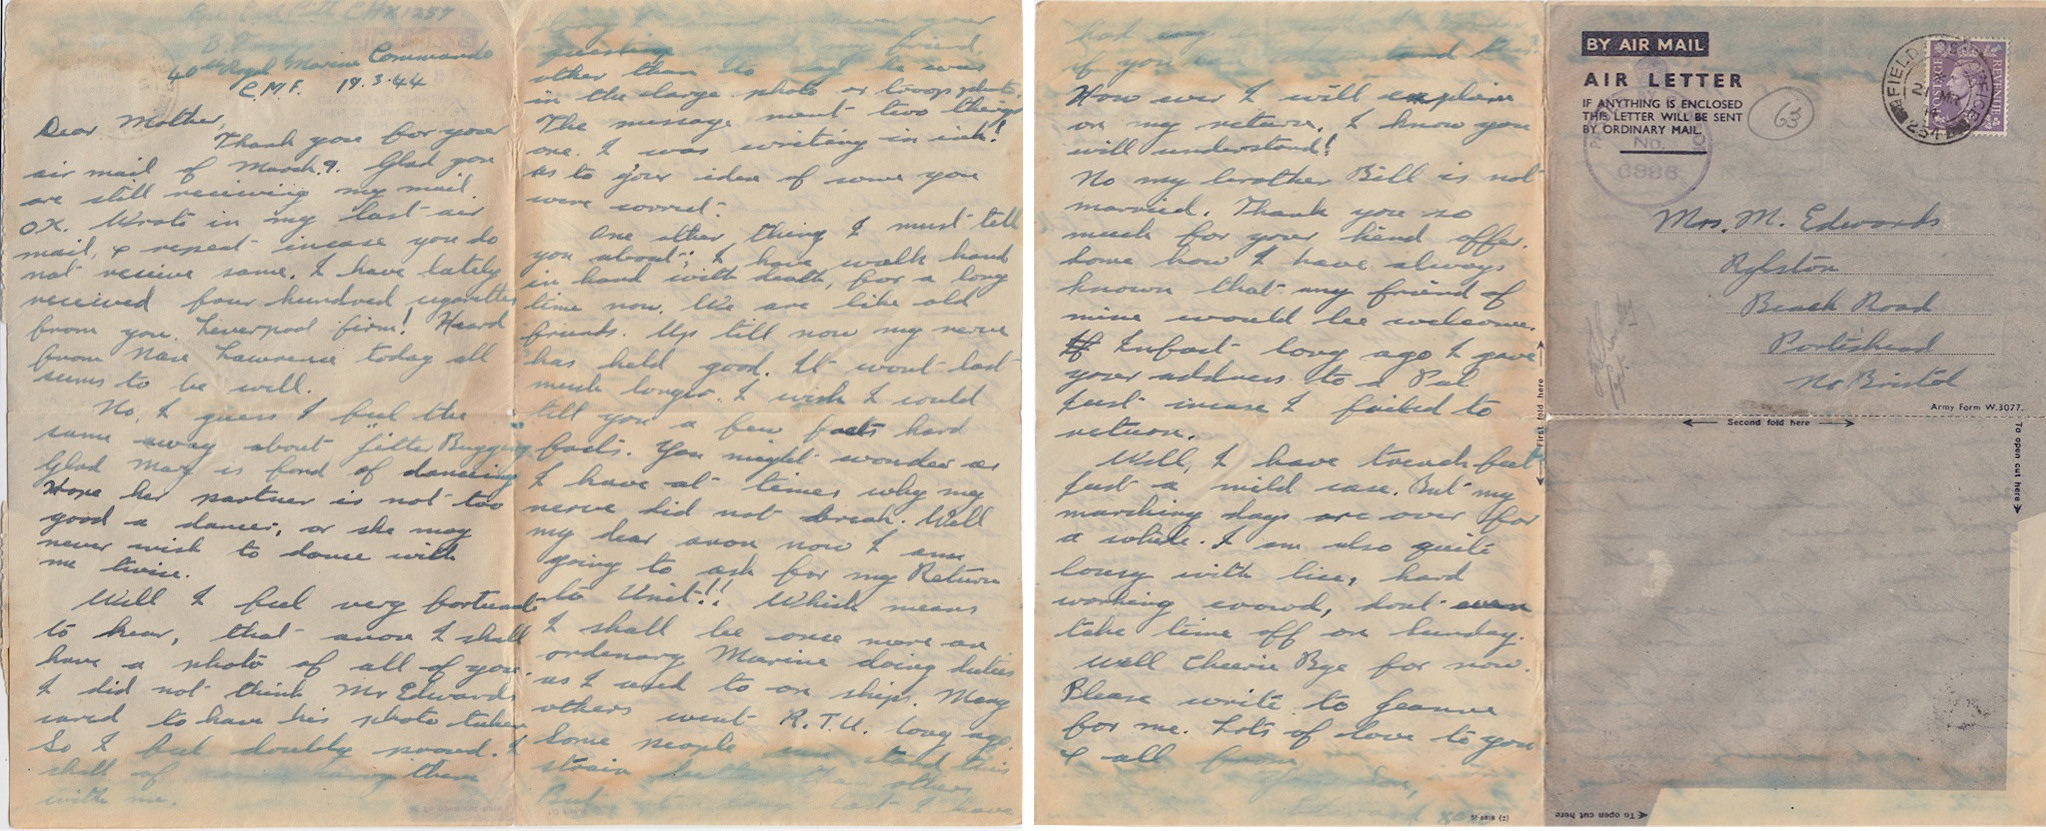 CHX1257
B. Troop
40th Royal Marine Commando
C.M.F. 19.3.44
Dear Mother,
Thank you for your
air mail of March.9. Glad you
are still receiving my mail
O.K. Wrote in my last air
mail, & repeat incase you do
not receive same. I have lately
received four hundred cigarettes
from you. Liverpool firm! Heard
from Lawrence today all
seems to be well.
No, I guess I feel the
same away about "jitter Bugging
Glad Mary is fond of dancing
Hope her partner is not too
good a dancer, or she may
never wish to dance with
me twice.
Well I feel very fortunate
to hear, that anon I shall
have a photo of all of you.
I did not think Mr Edwards
cared to have his photo taken
So I feel doubly proud. I
shall of having them
with me.
your
question my friend,
other than to say he was
in the large photo or troop photo.
The message ment two things
one. I was writing in ink!
as to your idea of some you
were correct.
One other thing I must tell
you about; I have walk hand
in hand with death, for a long
time now. We are like old
friends. Up till now my nerve
has held good. It wont last
much longer. I wish I could
tell you a few facts hard
facts. You might wonder as
I have at times why my
nerve did not break. Well
my dear anon now I am
going to ask for my Return
to Unit!! Which means
I shall be once more an
ordenary Marine doing duties
as I used to on ships. Many
others went R.T.U. long ago.
Some people can stand this
strain better than others
But at long last I have
had my
if you can understand this.
How ever I will explain
on my return, I know you
will understand!
No my brother Bill is not
married. Thank you so
much for your kind offer.
Some how I have always
known that my friend of
mine would be welcome.
Infact long ago I gave
your address to a Pal
just incase I failed to
return.
Well, I have trench feet
just a mild case. But my
marching days are over for
a while. I am also quite
lousy with lice, hard
working crowd, dont even
take time off on Sunday.
Well Cheerie Bye for now.
Please write to Jeanne
for me. Lots of love to you
& all from
Your Son,
Edward xxx
BY AIR MAIL
AIR LETTER
IF ANYTHING IS ENCLOSED
THIS LETTER WILL BE SENT
BY ORDINARY MAIL.
63
No.
FIELD POST OFFICE
21 MR
POSTAGE
REVENUE
Mrs. M. Edwards
Rylston
Beach Road
Portishead
Nr Bristol
Army Form W.3077.
First fold here
Second fold here
To open cut here
To open cut here